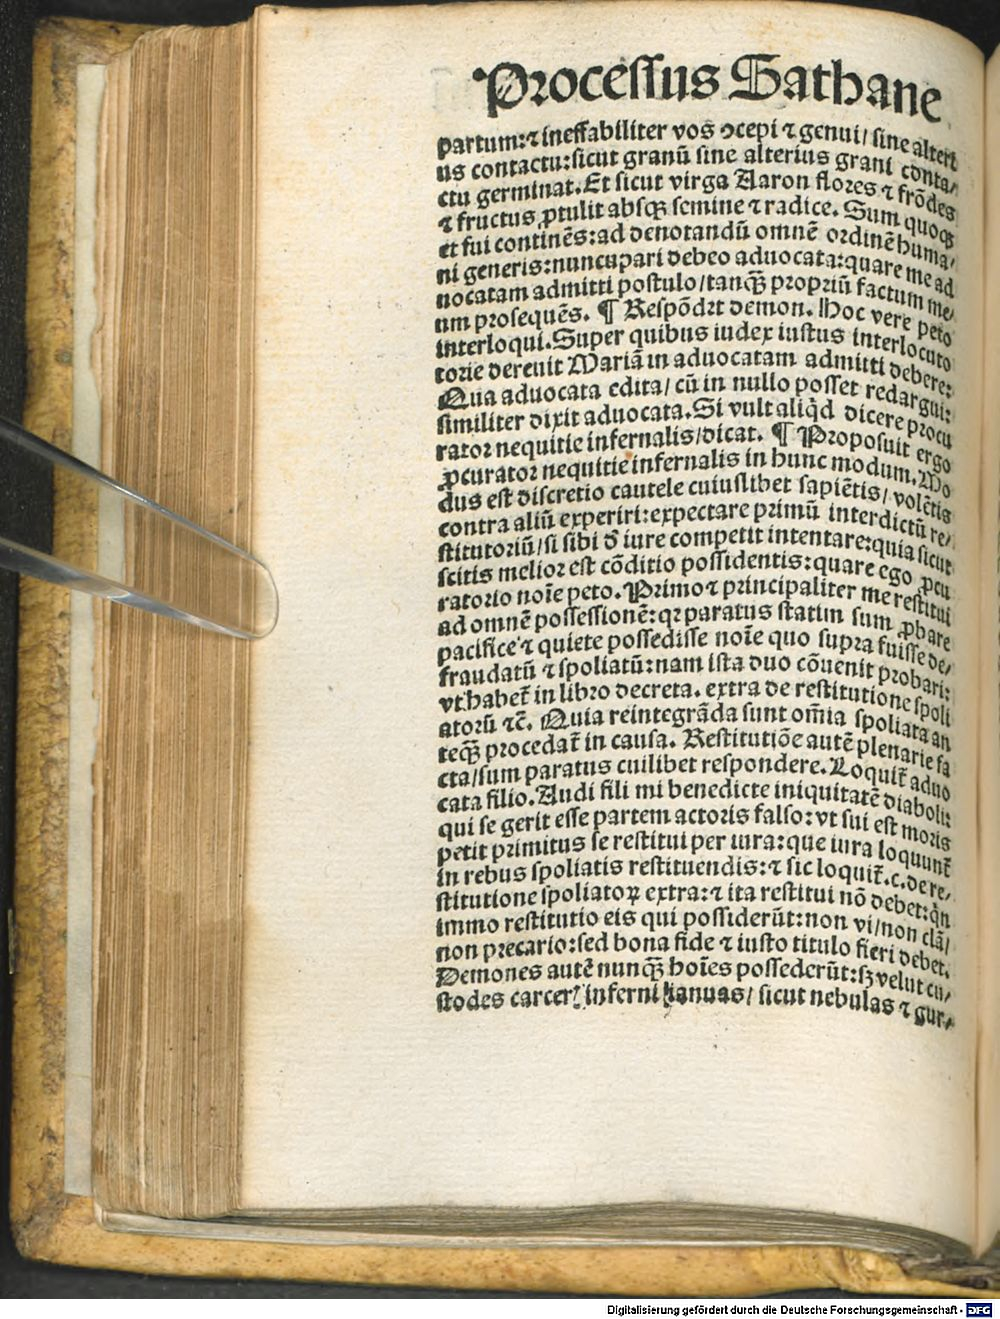 Processus Sathane
partum: ⁊ ineffabiliter vos ↄcepi ⁊ genui/ sine alteri
us contactu: sicut granū sine alterius grani conta/
ctu germinat. Et sicut virga Aaron flores ⁊ frōdes
⁊ fructus ꝓtulit absqꝫ semine ⁊ radice. Sum quoqꝫ
et fui continēs: ad denotandū omnē ordinē huma/
ni generis: nuncupari debeo aduocata: quare me ad
uocatam admitti postulo/ tanqꝫ̄ propriū factum me/
um prosequēs. ¶ Respōdꝫt demon. Hoc vere peto
interloqui. Super quibus iudex iustus interlocuto
torie decreuit Mariā in aduocatam admitti debere:
Qua aduocata edita/ cū in nullo posset redargui:
similiter dixit aduocata. Si vult aliq̄d dicere procu
rator nequitie infernalis/ dicat. ¶ Proposuit ergo
ꝓcurator nequitie infernalis in hunc modum. Mo
dus est discretio cautele cuiuslibet sapiētis/ volētis
contra aliū experiri: expectare primū interdictū re/
stitutoriū/ si sibi ð iure competit intentare: quia sicut
scitis melior est cōditio possidentis: quare ego ꝓcu
ratorio noīe peto. Primo ⁊ principaliter me restitui
ad omnē possessionē: qꝛ paratus statim sum ꝓbare
pacifice ⁊ quiete possedisse noīe quo supra fuisse de/
fraudatū ⁊ spoliatū: nam ista duo cōuenit probari:
vt habet᷑ in libro decreta. extra de restitutione spoli
atorū ⁊c̄. Quia reintegrāda sunt om̄ia spoliata an
teqꝫ̄ procedat᷑ in causa. Restitutiōe autē plenarie fa
cta/ sum paratus cuilibet respondere. Loquit᷑ aduo
cata filio. Audi fili mi benedicte iniquitatē diaboli:
qui se gerit esse partem actoris falso: vt sui est moris
petit primitus se restitui per iura: que iura loquunt᷑
in rebus spoliatis restituendis: ⁊ sic loquit᷑ .c. de re/
stitutione spoliatoꝝ extra: ⁊ ita restitui nō debet: qn̄
immo restitutio eis qui possiderūt: non vi/ non clā/
non precario: sed bona fide ⁊ iusto titulo fieri debet.
Demones autē nunqꝫ̄ hoīes possederūt: sꝫ velut cu/
stodes carcerꝭ inferni ianuas/ sicut nebulas ⁊ gur/
Digitalisierung gefördert durch die Deutsche Forschungsgemeinschaft - DFG